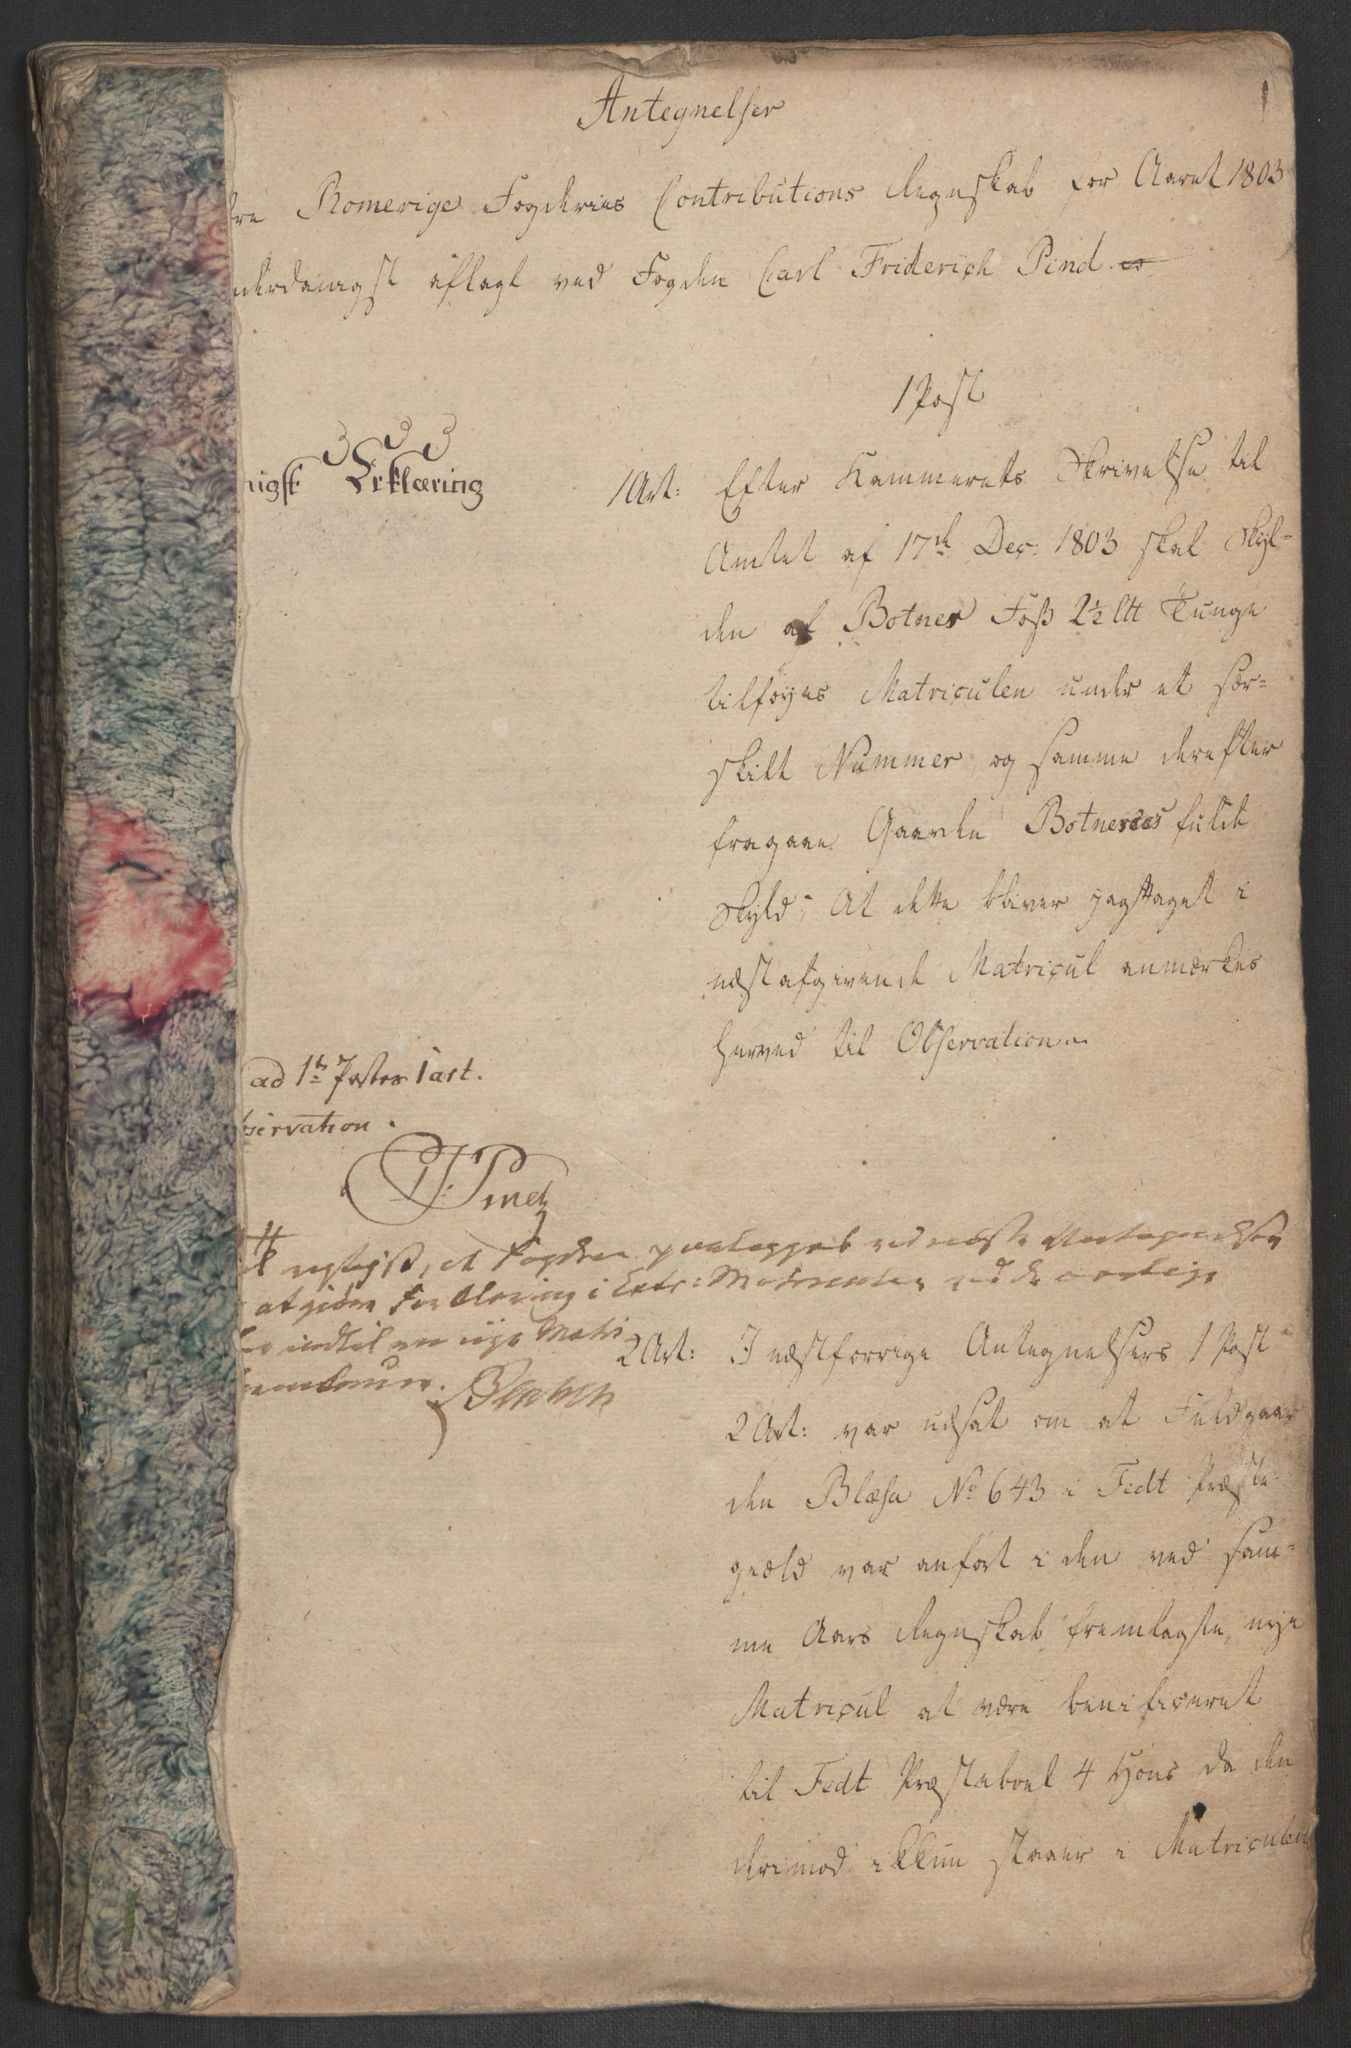 Antegnelser
dre Romerige Fogderies Contributions Regnskab for Aaret 1803
underdanigst aflagt ved Fogden Carl Friderich Pind
1 Post
nigst Erklæring
1 Art: Efter Kammerets Skrivelse til
Amtet af 17de Dec: 1803 skal Skyl-
den af Botner Foss 2½ Ltt Tunge
tilføyes Matriculen under et sær-
skilt Nummer, og samme derefter
fragaae Gaarden Botneres fulde
Skyld; At dette bliver jagttaget i
næstafgivende Matricul anmærkes
herved til Observation.
ad 1te Postes 1 art.
bservation.
CF Pind
at Fogden paalægges ved næste Antegnelser
at giøre Forklaring i Extr: Matriculen ved de aarlige
indtil en nye Matri
2 Art: I næstforrige Antegnelsers 1 Post
2 Art: var udsat om at Fuldgaar
den Blæsa No 643 i Fedt Præste
gield var anført i den ved sam-
me Aars Regnskab fremlagte nye
Matricul at være benificeret
til Fedt Præsteboel 4 Høns da den
derimod ikkun staaer i Matriculen